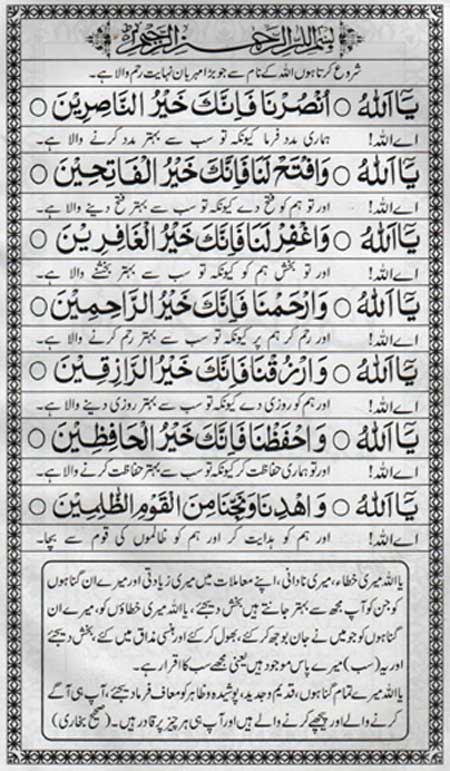 بسم اللہ الرحمن الرحیم
شروع کرتا ہوں اللہ کے نام سے جو بڑا مہربان نہایت رحم والا ہے۔
يَا اَللهُ ○ اُنْصُرْنَا فَاِنَّكَ خَيْرُ النَّاصِرِيْنَ ○
اے اللہ! ہماری مدد فرما کیونکہ تو سب سے بہتر مدد کرنے والا ہے۔
يَا اَللهُ ○ وَافْتَحْ لَنَا فَاِنَّكَ خَيْرُ الْفَاتِحِيْنَ ○
اے اللہ! اور تو ہم کو فتح دے کیونکہ تو سب سے بہتر فتح دینے والا ہے۔
يَا اَللهُ ○ وَاغْفِرْ لَنَا فَاِنَّكَ خَيْرُ الْغَافِرِيْنَ ○
اے اللہ! اور تو بخش ہم کو کیونکہ تو سب سے بہتر بخشنے والا ہے۔
يَا اَللهُ ○ وَارْحَمْنَا فَاِنَّكَ خَيْرُ الرَّاحِمِيْنَ ○
اے اللہ! اور رحم کر ہم پر کیونکہ تو سب سے بہتر رحم کرنے والا ہے۔
يَا اَللهُ ○ وَارْزُقْنَا فَاِنَّكَ خَيْرُ الرَّازِقِيْنَ ○
اے اللہ! اور ہم کو روزی دے کیونکہ تو سب سے بہتر روزی دینے والا ہے۔
يَا اَللهُ ○ وَاحْفَظْنَا فَاِنَّكَ خَيْرُ الْحَافِظِيْنَ ○
اے اللہ! اور تو ہماری حفاظت کر کیونکہ تو سب سے بہتر حفاظت کرنے والا ہے۔
يَا اَللهُ ○ وَاهْدِنَا وَنَجِّنَا مِنَ الْقَوْمِ الظَّالِمِيْنَ ○
اے اللہ! اور ہم کو ہدایت کر اور ہم کو ظالموں کی قوم سے بچا۔
یا اللہ میری خطاء، میری نادانی، اپنے معاملات میں میری زیادتی اور میرے ان گناہوں
کو جن کو آپ مجھ سے بہتر جانتے ہیں بخش دیجئے، یا اللہ میری خطاؤں کو، میرے ان
گناہوں کو جو میں نے جان بوجھ کر کئے، بھول کر کئے اور ہنسی مذاق میں کئے، بخش دیجئے
اور یہ (سب) میرے پاس موجود ہیں یعنی مجھے سب کا اقرار ہے۔
یا اللہ میرے تمام گناہوں، قدیم و جدید، پوشیدہ و ظاہر کو معاف فرما دیجئے، آپ ہی آگے
کرنے والے اور پیچھے کرنے والے ہیں اور آپ ہی ہر چیز پر قادر ہیں۔ (صحیح بخاری)